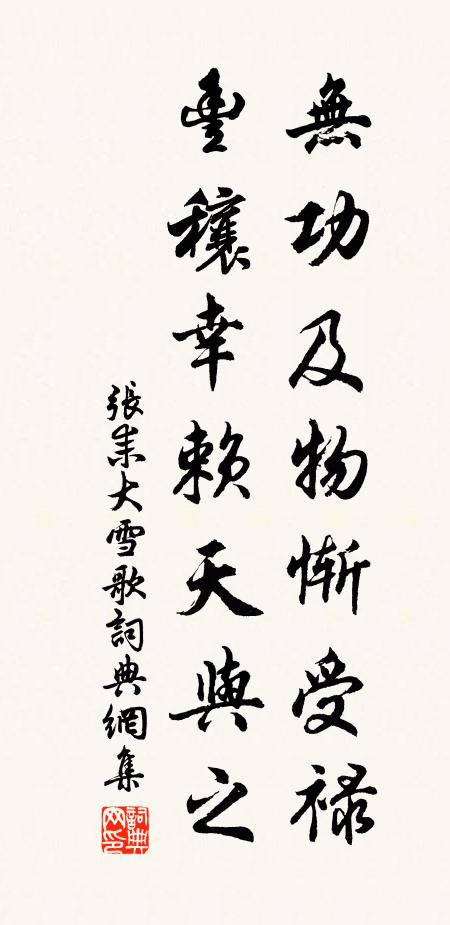 無功及物慚受禄
豊穰幸賴天與之
張耒大雪歌詞典網集
詞典网印